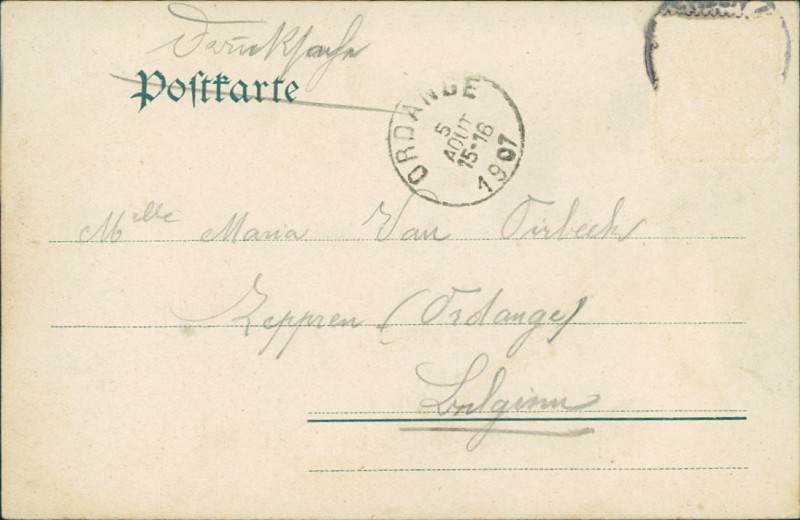 Drucksache
Postkarte
ORDANGE
5
AOUT
15-16
1907
Mlle Maria Van Tirbeek
Zeppren (Ordange)
Belgium